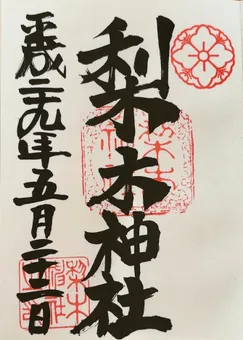 梨木神社
平成二十九年五月二十二日